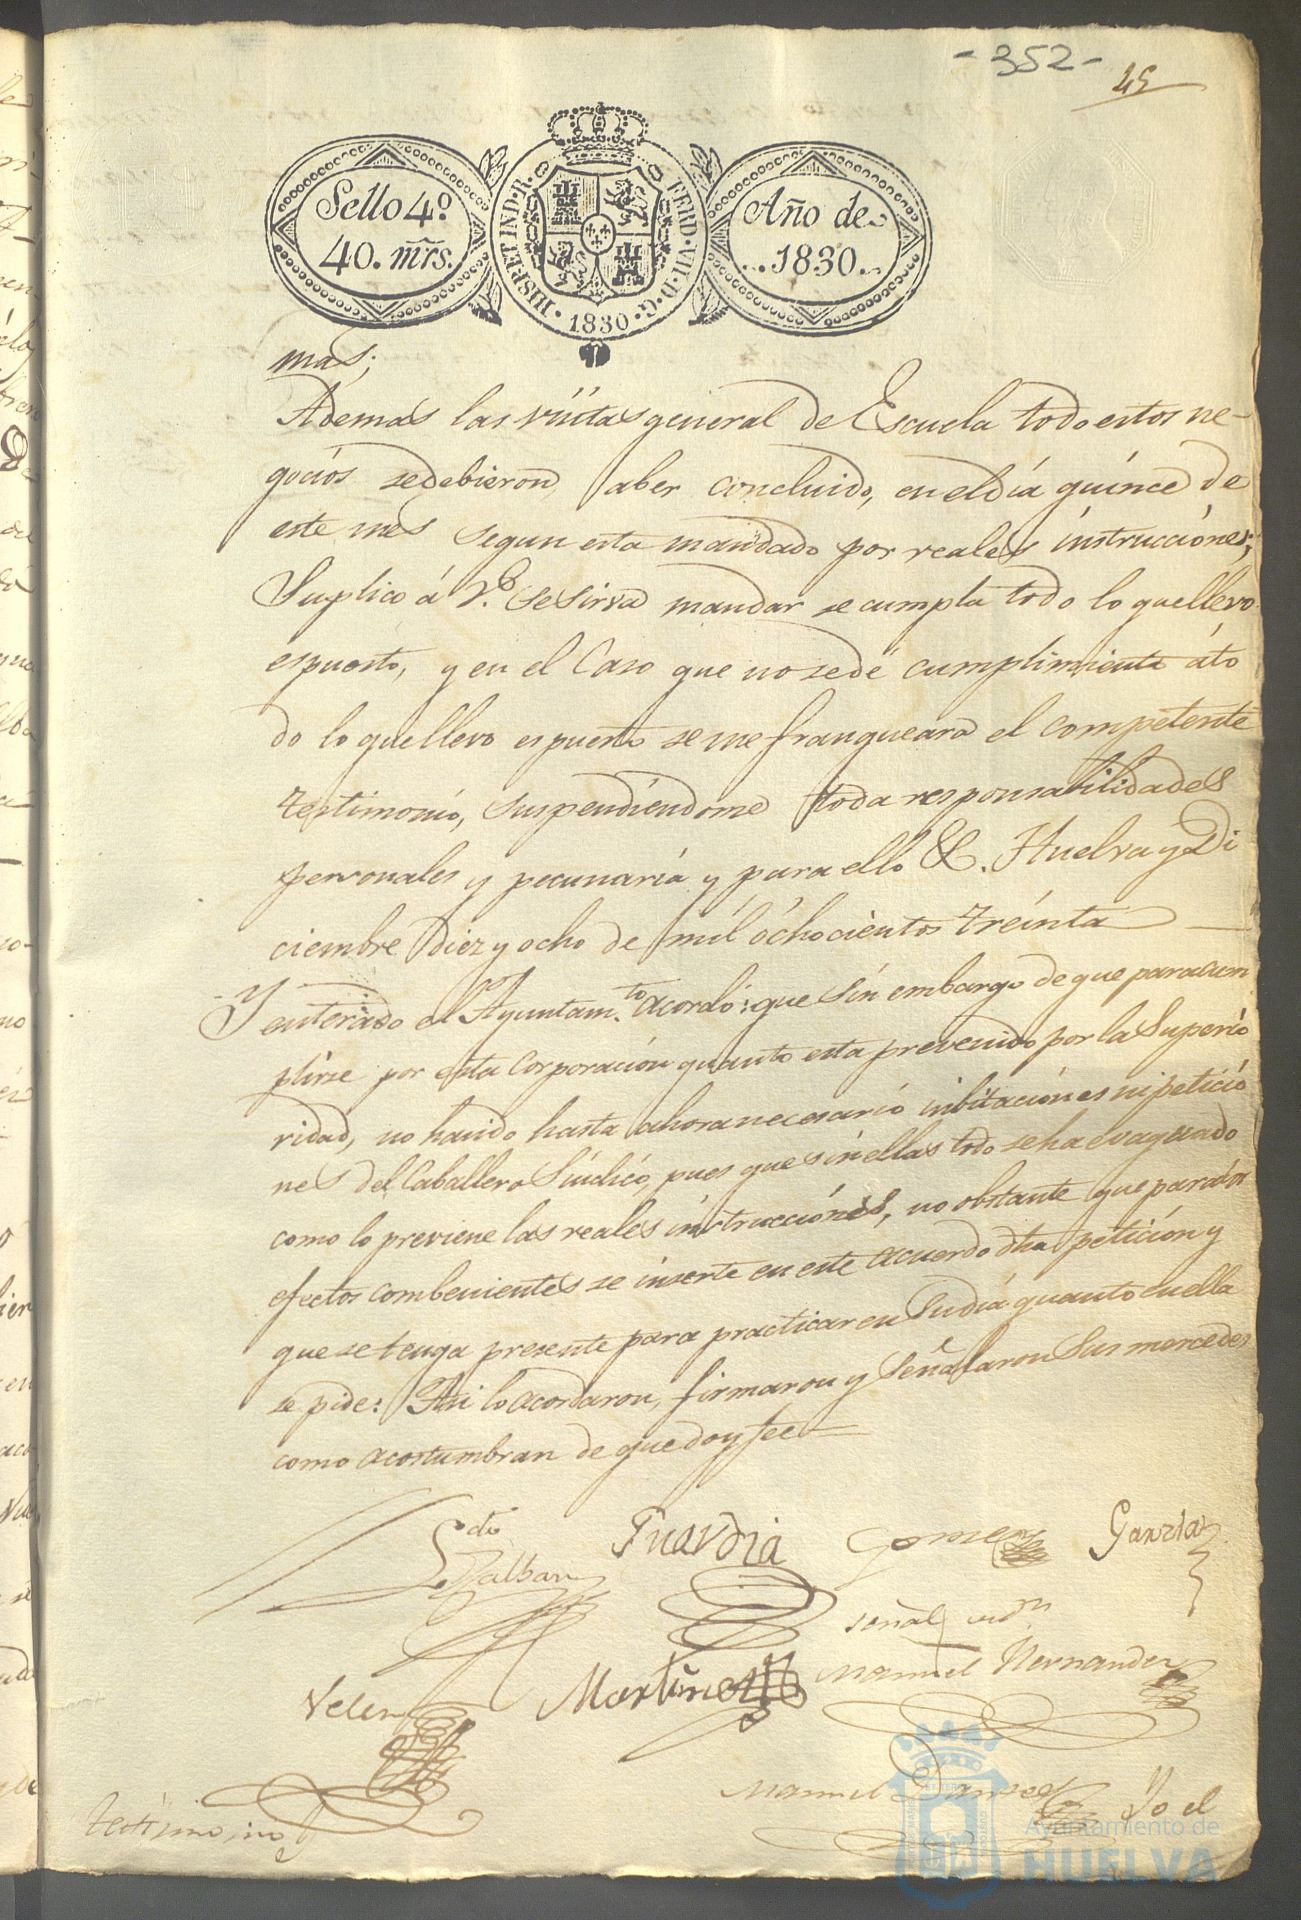 -352-
45
Sello 4º
40. mrs.
HISP. ET IND. R.
FERD. VII. D. G.
1830
Año de
1830
mas;
Ademas las visitas general de Escuela todo estos ne-
gocios se debieron aber concluido, en el día quince de
este mes segun esta mandado por reales instrucciónes;
Suplico á V.S se sirva mandar se cumpla todo lo que llevo
espuesto, y en el Caso que no se dé cumplimiento áto
do lo que llevo espuesto se me franqueara el competente
testimonio, suspendiéndome toda responsabilidades
personales y pecunaría y para ello &. Huelva y Di
ciembre Diez y ocho de mil óchocientos treinta
Y enterado el Ayuntam.to acordó: que sin embargo de que para cum
plirse por esta Corporación quanto esta prevenido por la Superio
ridad, no han sido hasta ahora necesario inbitaciónes ni petició
nes del Caballero Síndico, pues que sin ellas todo se ha evaquado
como lo previene las reales instrucciónes, no obstante que para los
efectos combenientes se inserte en este acuerdo dha petición y
que se tenga presente para practicar en su día quanto en ella
se pide: Asi lo acordaron, firmaron y señalaron sus mercedes
como acostumbran de que doy fee
Guardia
Gomez
Garzia
señal
Velez
Martinez
Manuel Hernandez
Manuel
Yo el
testimonio
Ayuntamiento de
HUELVA